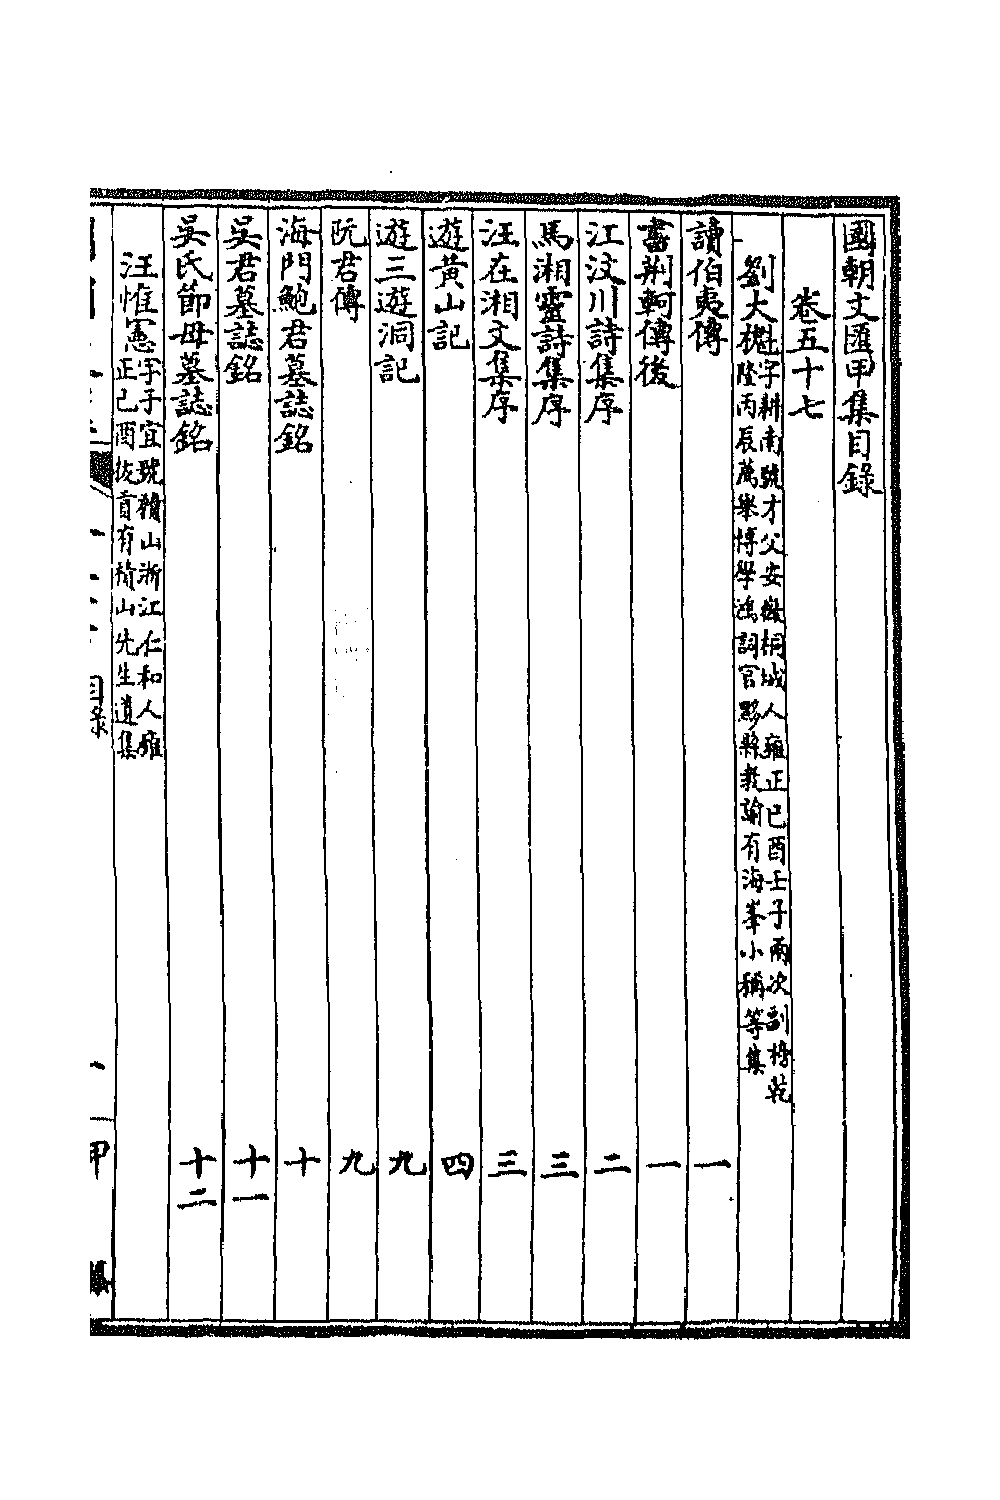 國朝文匯甲集目錄
卷五十七
劉大櫆字耕南號才父安徽桐城人雍正己酉壬子兩次副榜乾
隆丙辰薦舉博學鴻詞官黟縣教諭有海峯小稱等集
讀伯夷傳 一
書荊軻傳後 一
江汶川詩集序 二
馬湘靈詩集序 三
汪在湘文集序 三
遊黃山記 四
遊三遊洞記 九
阮君傳 九
海門鮑君墓誌銘 十
吳君墓誌銘 十一
吳氏節母墓誌銘 十二
汪惟憲字子宜號積山浙江仁和人雍
正己酉拔貢有積山先生遺集
目錄
一
甲